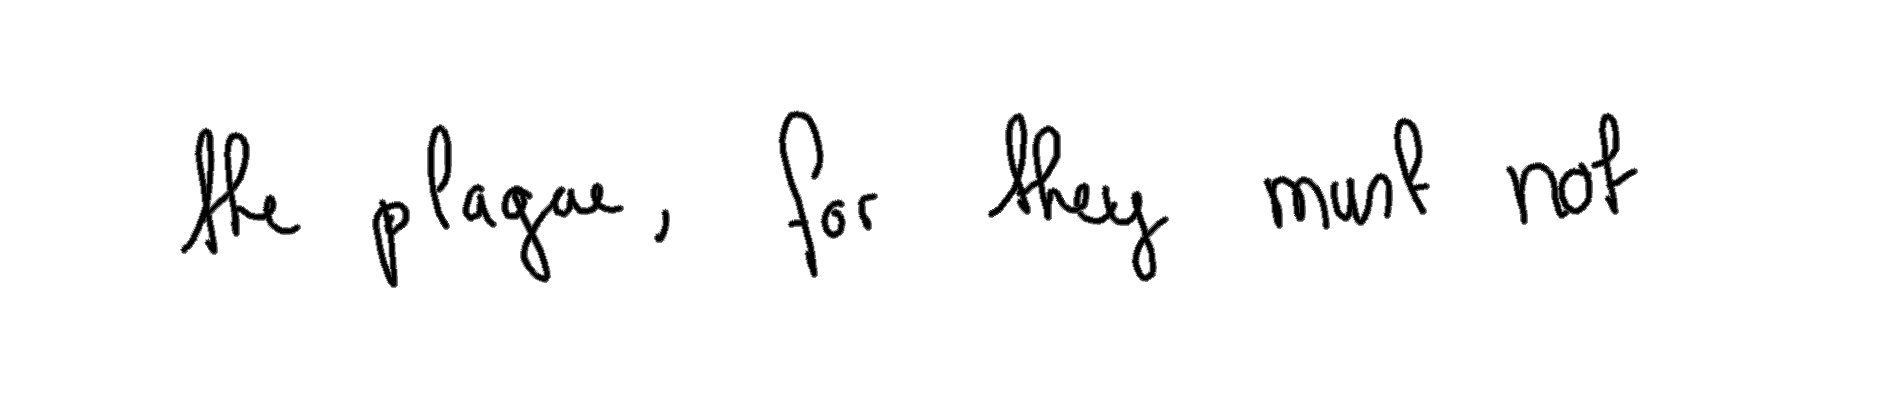 the plague, for they must not